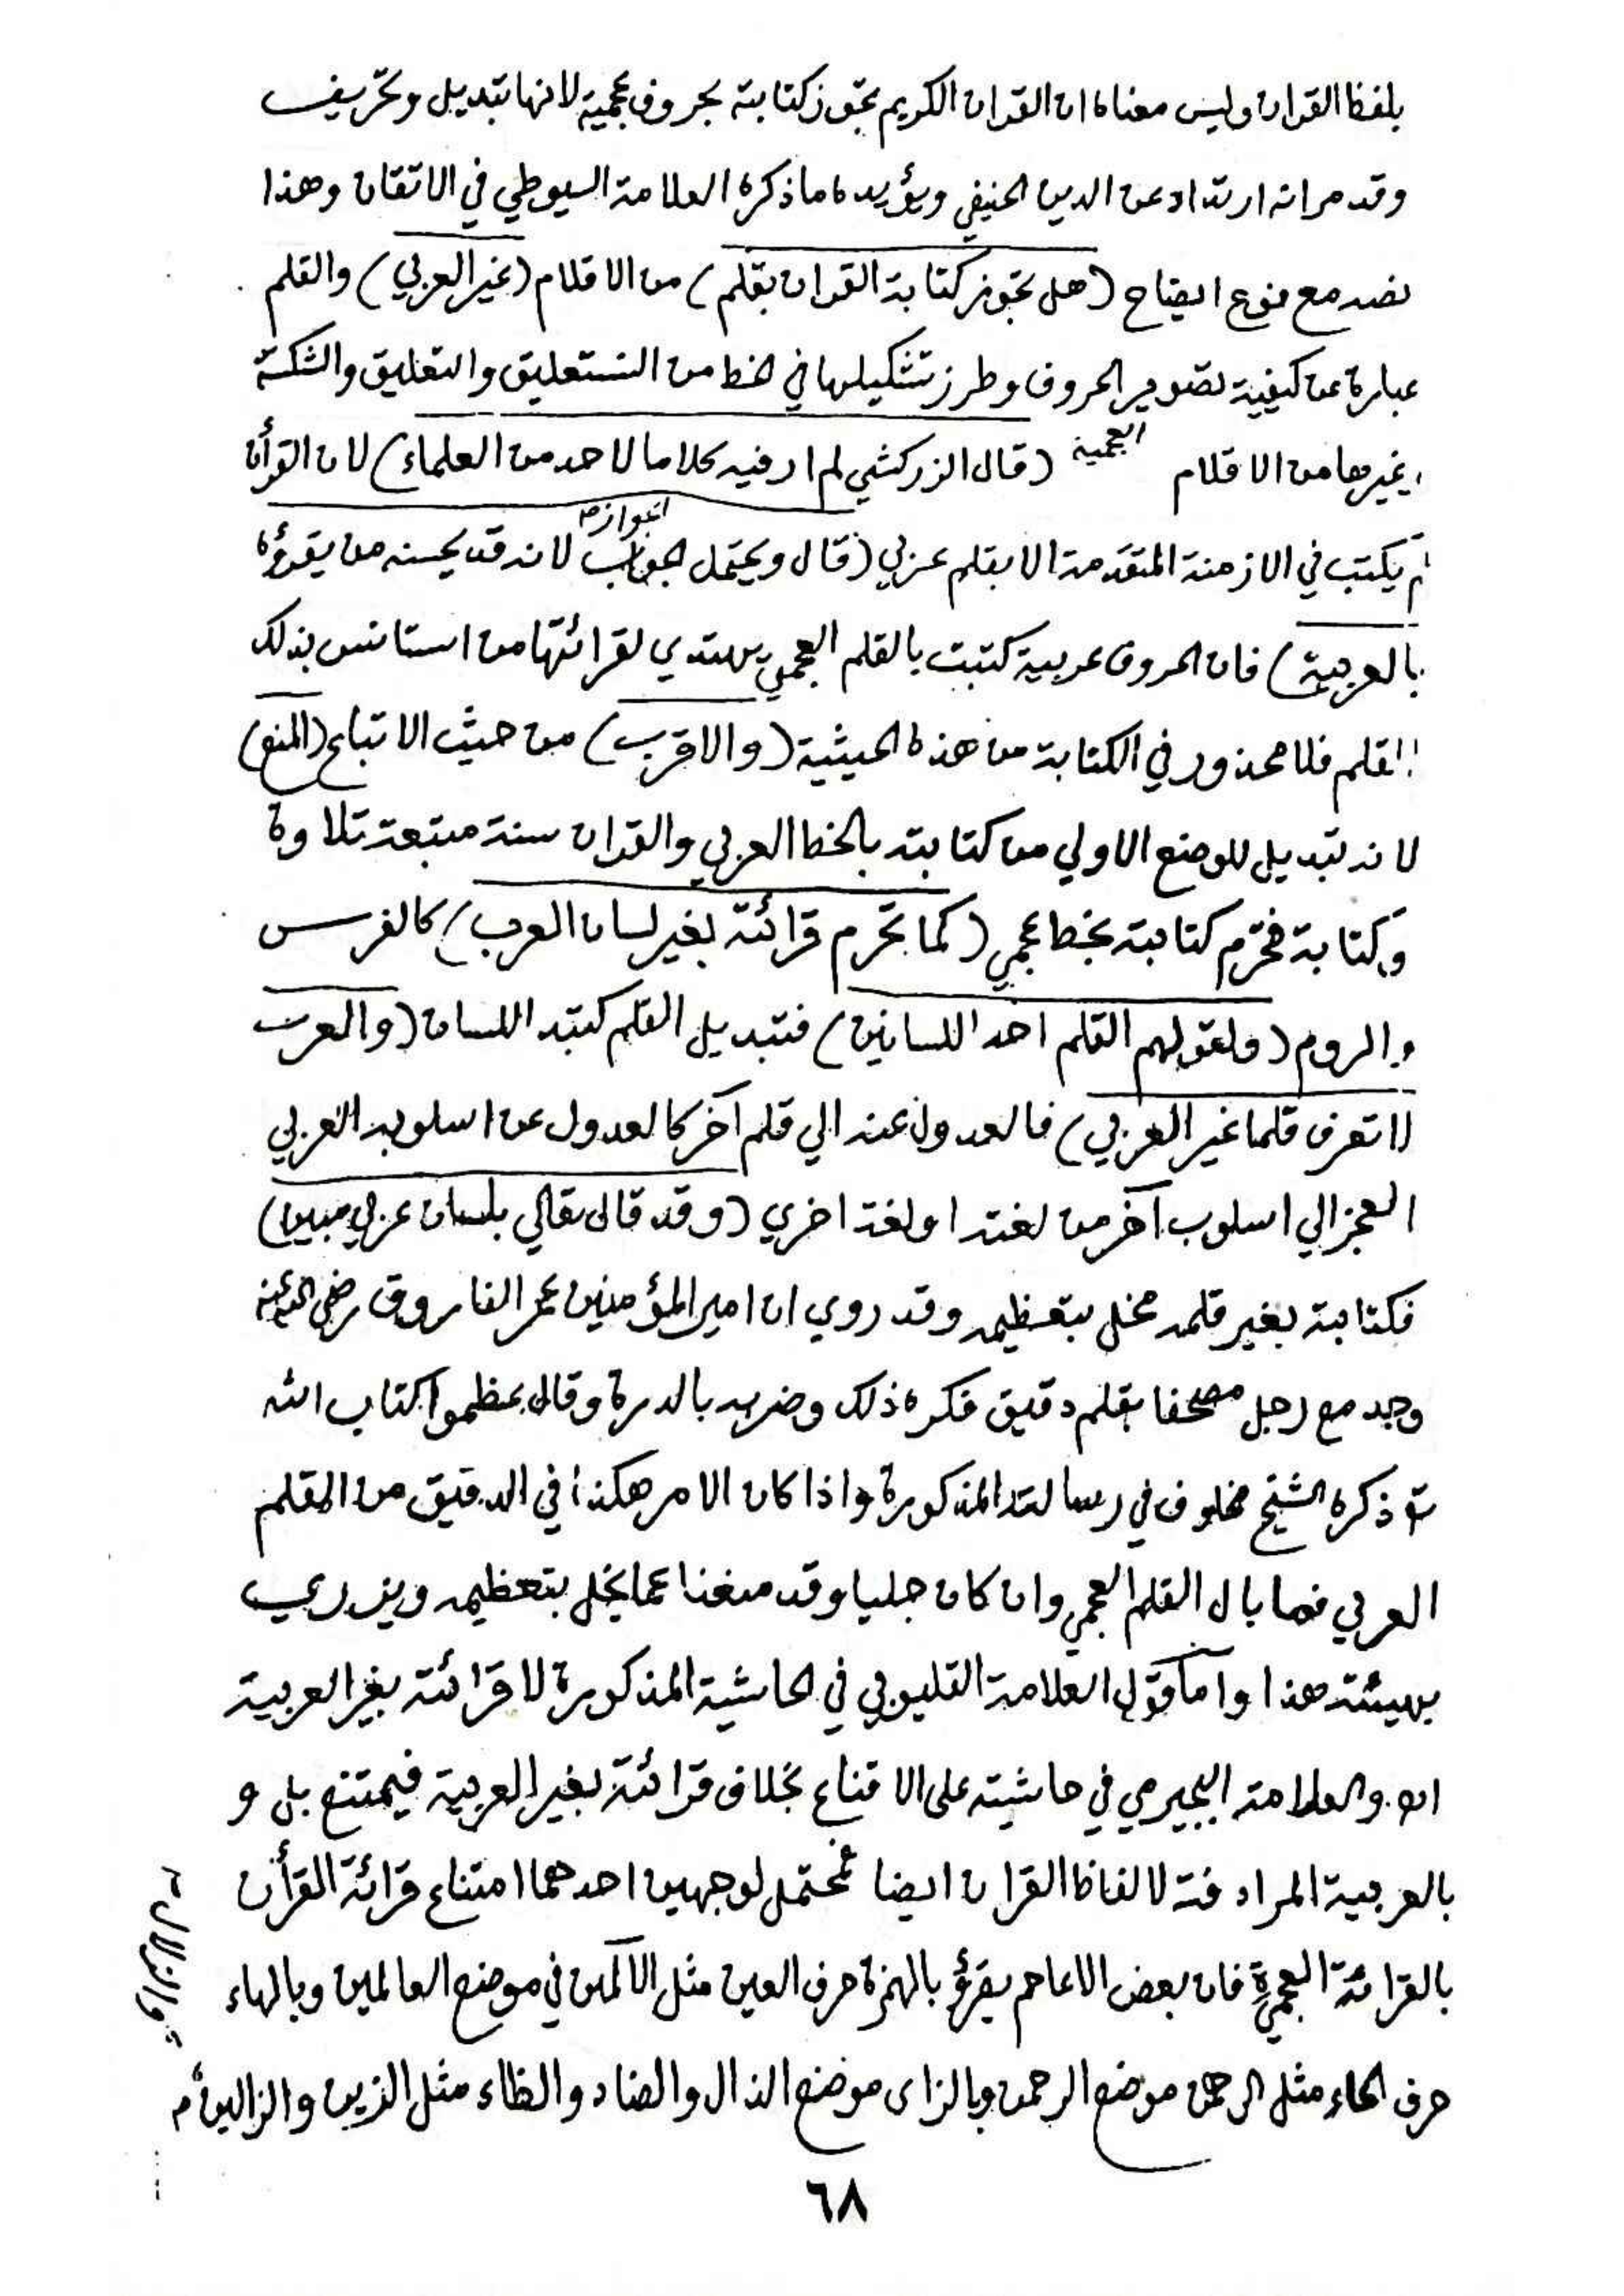 بلفظ القران وليس معناه ان القران الكريم تجوز كتابته بحروف عجمية لانها تبديل وتحريف
وقد مر انه ارتداد عن الدين الحنيفي ويؤيده ما ذكره العلامة السيوطي في الاتقان وهذا
نصه مع نوع ايضاح (هل تجوز كتابة القران بقلم) من الاقلام (غير العربي) والقلم
عبارة عن كيفية تصوير الحروف وطرز تشكيلها في الخط من النستعليق والتعليق والشكستة
وغيرها من الاقلام العجمية (قال الزركشي لم ار فيه كلاما لاحد من العلماء) لان القرأن
لم يكتب في الازمنة المتقدمة الا بقلم عربي (قال ويحتمل الجواز لانه قد يحسنه من يقرؤه
بالعربية) فان الحروف عربية كتبت بالقلم العجمي يهتدي لقرائتها من استانس بذلك
القلم فلا محذور في الكتابة من هذه الحيثية (والاقرب) من حيث الاتباع (المنع)
لانه تبديل للوضع الاولي من كتابته بالخط العربي والقران سنة متبعة تلاوة
وكتابة فتحرم كتابته بخط عجمي (كما تحرم قرائته بغير لسان العرب) كالفرس
والروم (ولقولهم القلم احد اللسانين) فتبديل القلم كتبد اللسان (والعرب
لا تعرف قلما غير العربي) فالعدول عنه الي قلم آخر كالعدول عن اسلوبه العربي
المعجز الي اسلوب آخر من لغته او لغة اخري (وقد قال تعالي بلسان عربي مبين)
فكتابته بغير قلمه مخل بتعظيمه وقد روي ان امير المؤمنين عمر الفاروق رضي الله عنه
وجد مع رجل مصحفا بقلم دقيق فكره ذلك وضربه بالدرة وقال عظموا كتاب الله
ذكره الشيخ مخلوف في رسالته المذكورة واذا كان الامر هكذا في الدقيق من القلم
العربي فما بال القلم العجمي وان كان جليا وقد منعنا عما يخل بتعظيمه ويزدري
بهيئته هذا واما قول العلامة القليوبي في الحاشية المذكورة لا قرائته بغير العربية
اه والعلامة البجيرمي في حاشيته على الاقناع بخلاف قرائته بغير العربية فيمتنع بل و
بالعربية المرادفة لالفاظ القران ايضا فمحتمل لوجهين احدهما امتناع قرائة القرأن
بالقرائة العجمية فان بعض الاعاجم يقرؤ بالهمزة حرف العين مثل الالمين في موضع العالمين وبالهاء
حرف الحاء مثل الرهمن موضع الرحمن وبالزاي موضع الذال والضاد والظاء مثل الزين والزالين
والزلال
٦٨